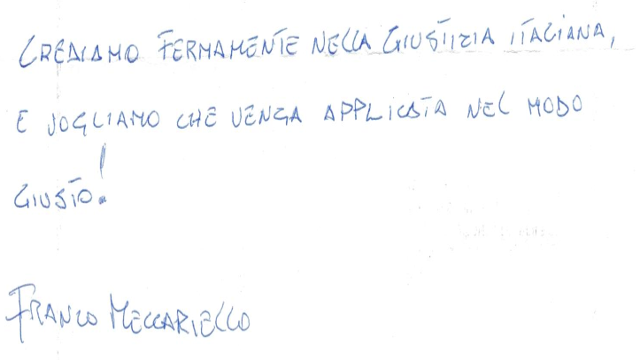 CREDIAMO FERMAMENTE NELLA GIUSTIZIA ITALIANA,
E VOGLIAMO CHE VENGA APPLICATA NEL MODO
GIUSTO!
FRANCO MECCARIELLO